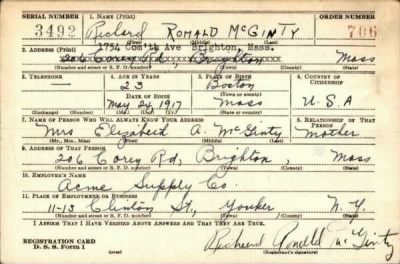 SERIAL NUMBER 1. NAME (Print) ORDER NUMBER
3492 Richard Romald McGinty 706
(First) (Middle) (Last)
1754 Com'th Ave Brighton, Mass.
2. ADDRESS (Print)
206 Corey Rd, Brighton Mass
(Number and street or R. F. D. number) (Town) (County) (State)
3. TELEPHONE 4. AGE IN YEARS 5. PLACE OF BIRTH 6. COUNTRY OF CITIZENSHIP
— 23 Boston
DATE OF BIRTH (Town or county)
May 24, 1917 Mass U.S.A
(Exchange) (Number) (Mo.) (Day) (Yr.) (State or country)
7. NAME OF PERSON WHO WILL ALWAYS KNOW YOUR ADDRESS 8. RELATIONSHIP OF THAT PERSON
Mrs Elizabeth A. McGinty Mother
(Mr., Mrs., Miss) (First) (Middle) (Last)
9. ADDRESS OF THAT PERSON
206 Corey Rd, Brighton, Mass
(Number and street or R. F. D. number) (Town) (County) (State)
10. EMPLOYER'S NAME
Acme Supply Co.
11. PLACE OF EMPLOYMENT OR BUSINESS
11-13 Clinton St, Yonker N.Y.
(Number and street or R. F. D. number) (Town) (County) (State)
I AFFIRM THAT I HAVE VERIFIED ABOVE ANSWERS AND THAT THEY ARE TRUE.
REGISTRATION CARD
D. S. S. Form 1 Richard Ronald McGinty
(Registrant's signature)